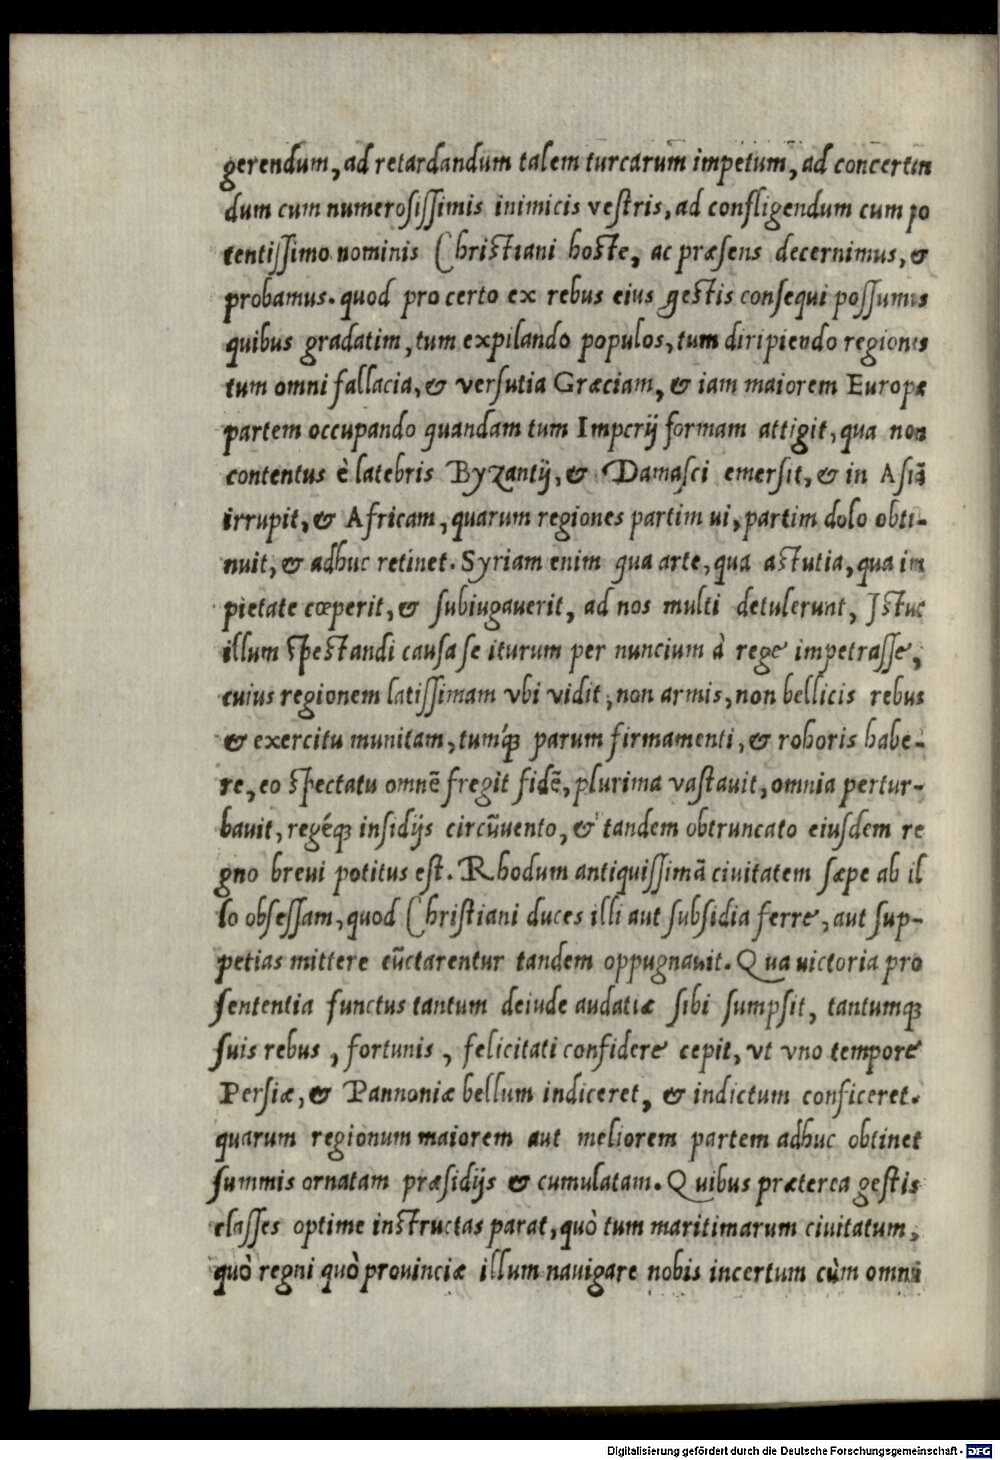 gerendum, ad retardandum talem turcarum impetum, ad concertan
dum cum numerosissimis inimicis vestris, ad confligendum cum po
tentissimo nominis Christiani hoste, ac præsens decernimus, &
probamus. quod pro certo ex rebus eius gestis consequi possumus
quibus gradatim, tum expilando populos, tum diripiendo regiones
tum omni fallacia, & versutia Græciam, & iam maiorem Europæ
partem occupando quandam tum Imperij formam attigit, qua non
contentus è latebris Byzantij, & Damasci emersit, & in Asiā
irrupit, & Africam, quarum regiones partim ui, partim dolo obti-
nuit, & adhuc retinet. Syriam enim qua arte, qua astutia, qua im
pietate cœperit, & subiugauerit, ad nos multi detulerunt, Istuc
illum spectandi causa se iturum per nuncium à rege impetrasse,
cuius regionem latissimam vbi vidit, non armis, non bellicis rebus
& exercitu munitam, tumq́ꝫ parum firmamenti, & roboris habe-
re, eo spectatu omnē fregit fidē, plurima vastauit, omnia pertur-
bauit, regéqꝫ insidijs circūuento, & tandem obtruncato eiusdem re
gno breui potitus est. Rhodum antiquissimā ciuitatem sæpe ab il
lo obsessam, quod Christiani duces illi aut subsidia ferre, aut sup-
petias mittere cūctarentur tandem oppugnauit. Qua uictoria pro
sententia functus tantum deiude audatiæ sibi sumpsit, tantumqꝫ
suis rebus, fortunis, felicitati confidere cepit, vt vno tempore
Persiæ, & Pannoniæ bellum indiceret, & indictum conficeret.
quarum regionum maiorem aut meliorem partem adhuc obtinet
summis ornatam præsidijs & cumulatam. Quibus præterea gestis
classes optime instructas parat, quò tum maritimarum ciuitatum,
quò regni quò prouinciæ illum nauigare nobis incertum cùm omni
Digitalisierung gefördert durch die Deutsche Forschungsgemeinschaft - DFG